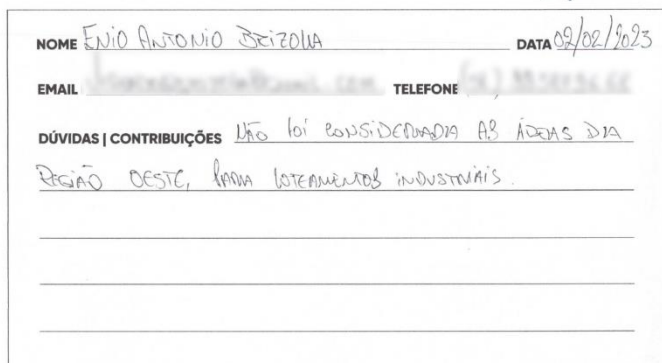 NOME ENIO ANTONIO BRIZOLLA DATA 02/02/2023
EMAIL TELEFONE
DÚVIDAS | CONTRIBUIÇÕES NÃO foi CONSIDERADA AS ÁREAS DA
REGIÃO OESTE, PARA LOTEAMENTOS INDUSTRIAIS.